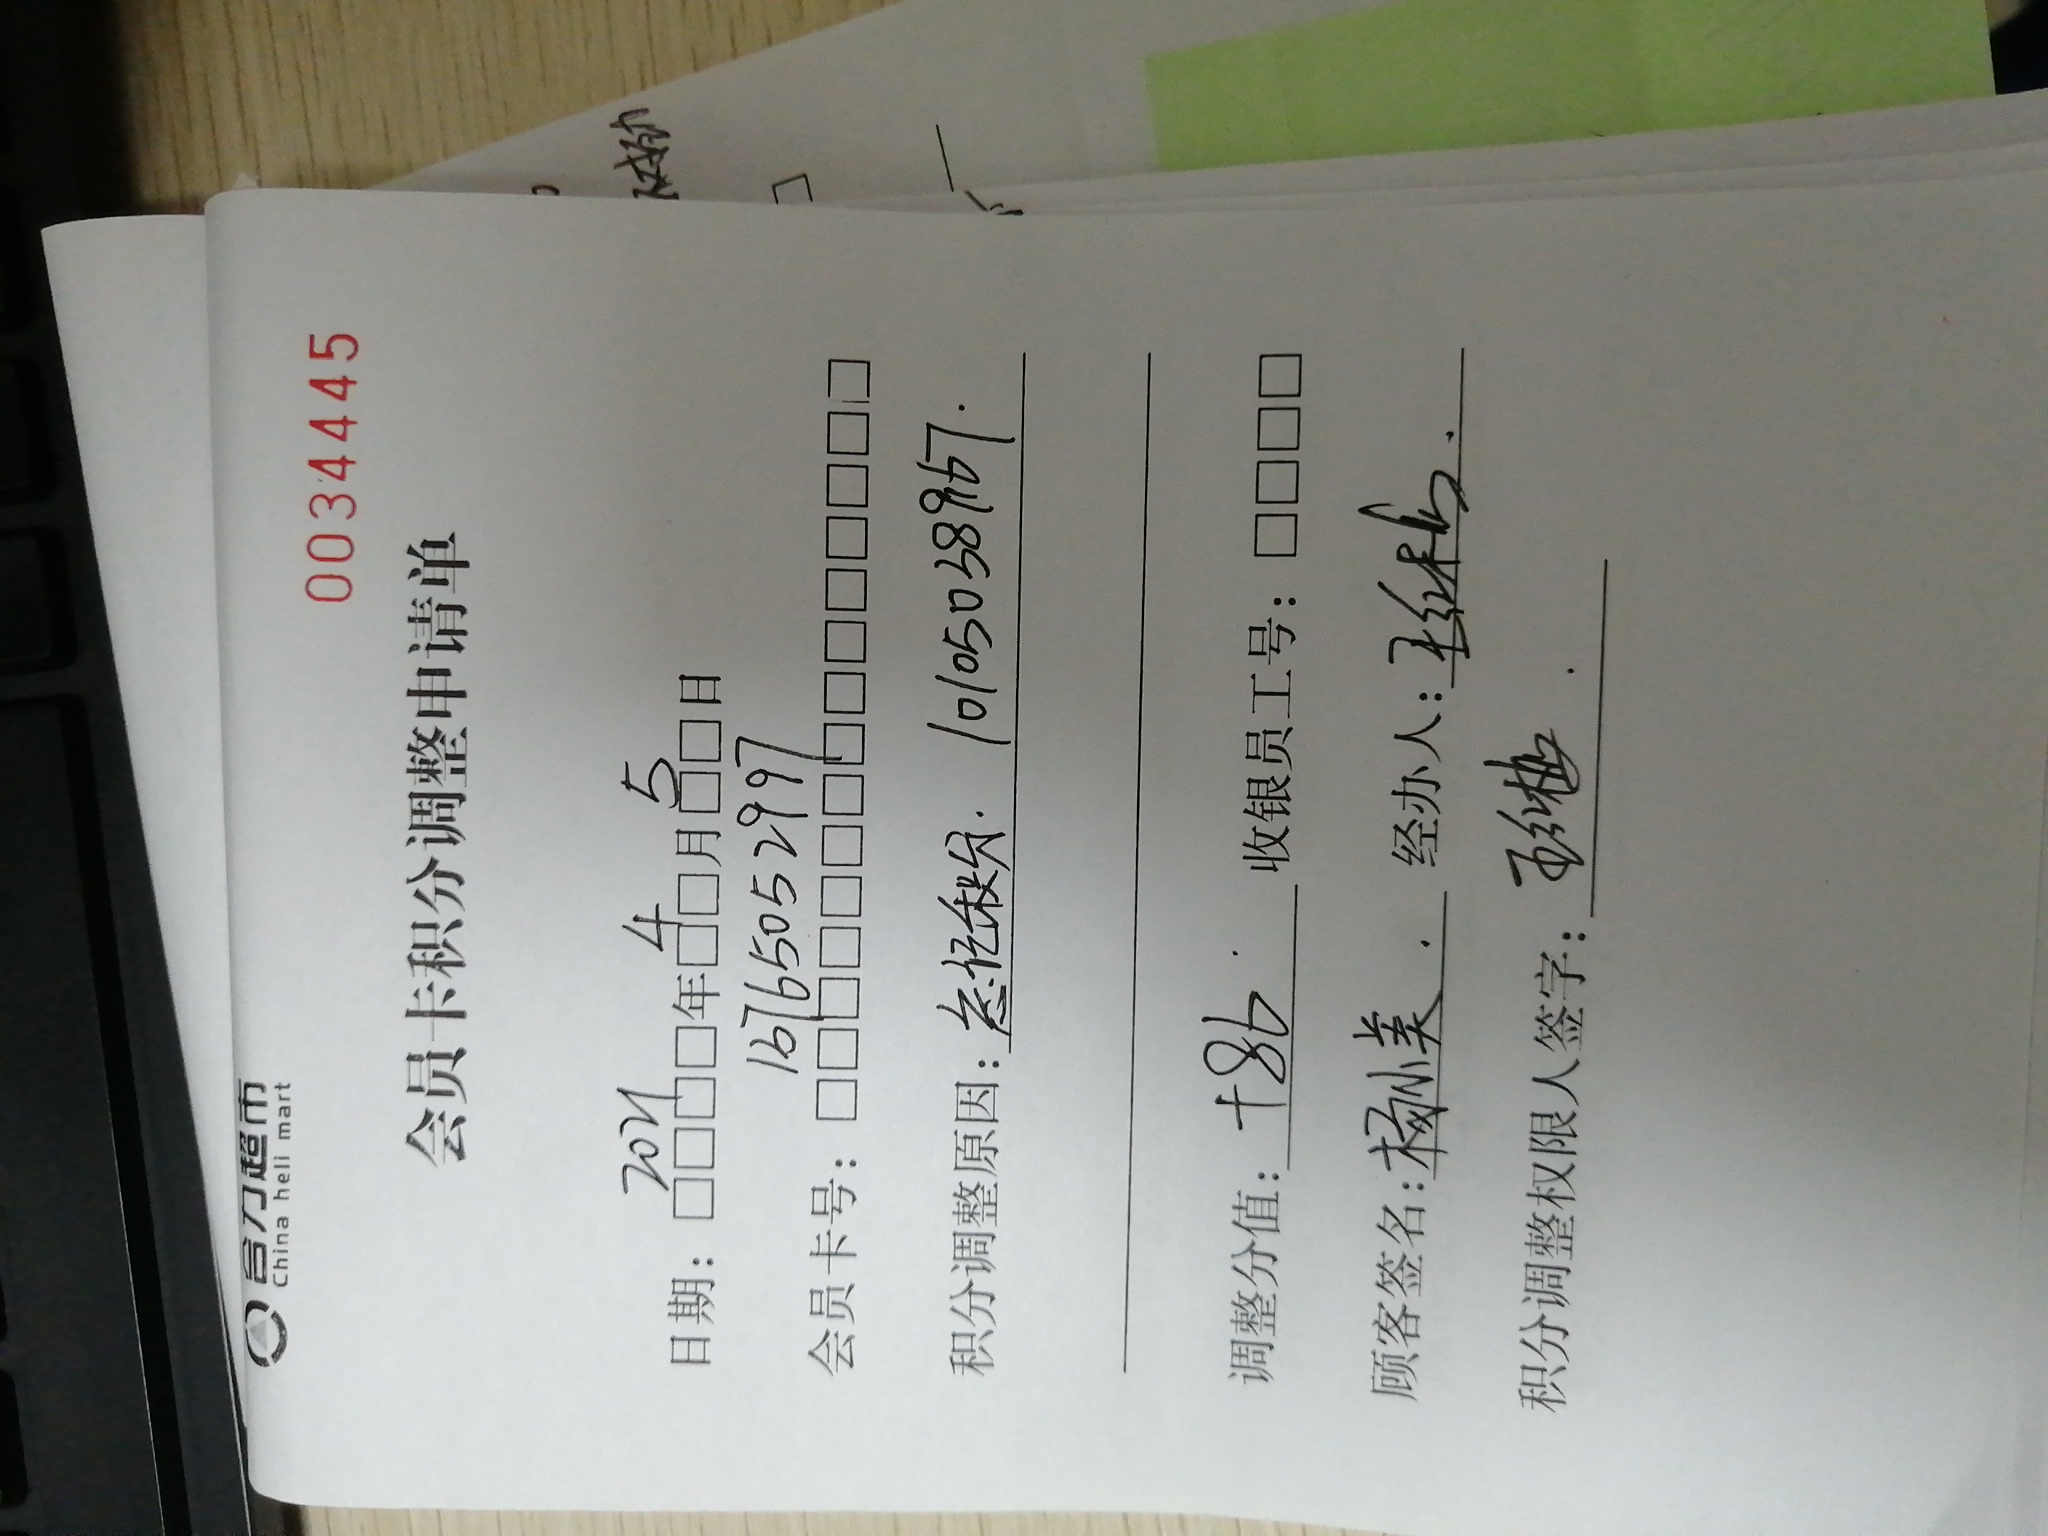 合力超市
China heli mart
0034445
会员卡积分调整申请单
日期：2021年4月5日
会员卡号：16765052997
积分调整原因：忘记积分. 10105038967.
调整分值：+86. 收银员工号：□□□□
顾客签名：杨小美. 经办人：王继梅.
积分调整权限人签字：王继梅.